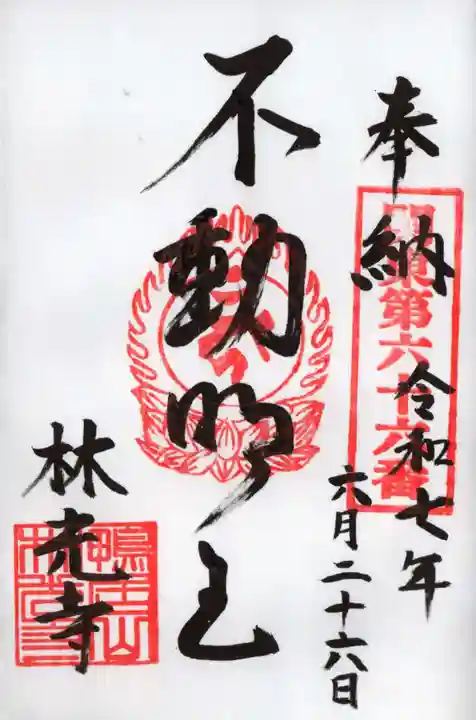 奉納
令和七年
六月二十六日
関東第六十六番
不動明王
林光寺